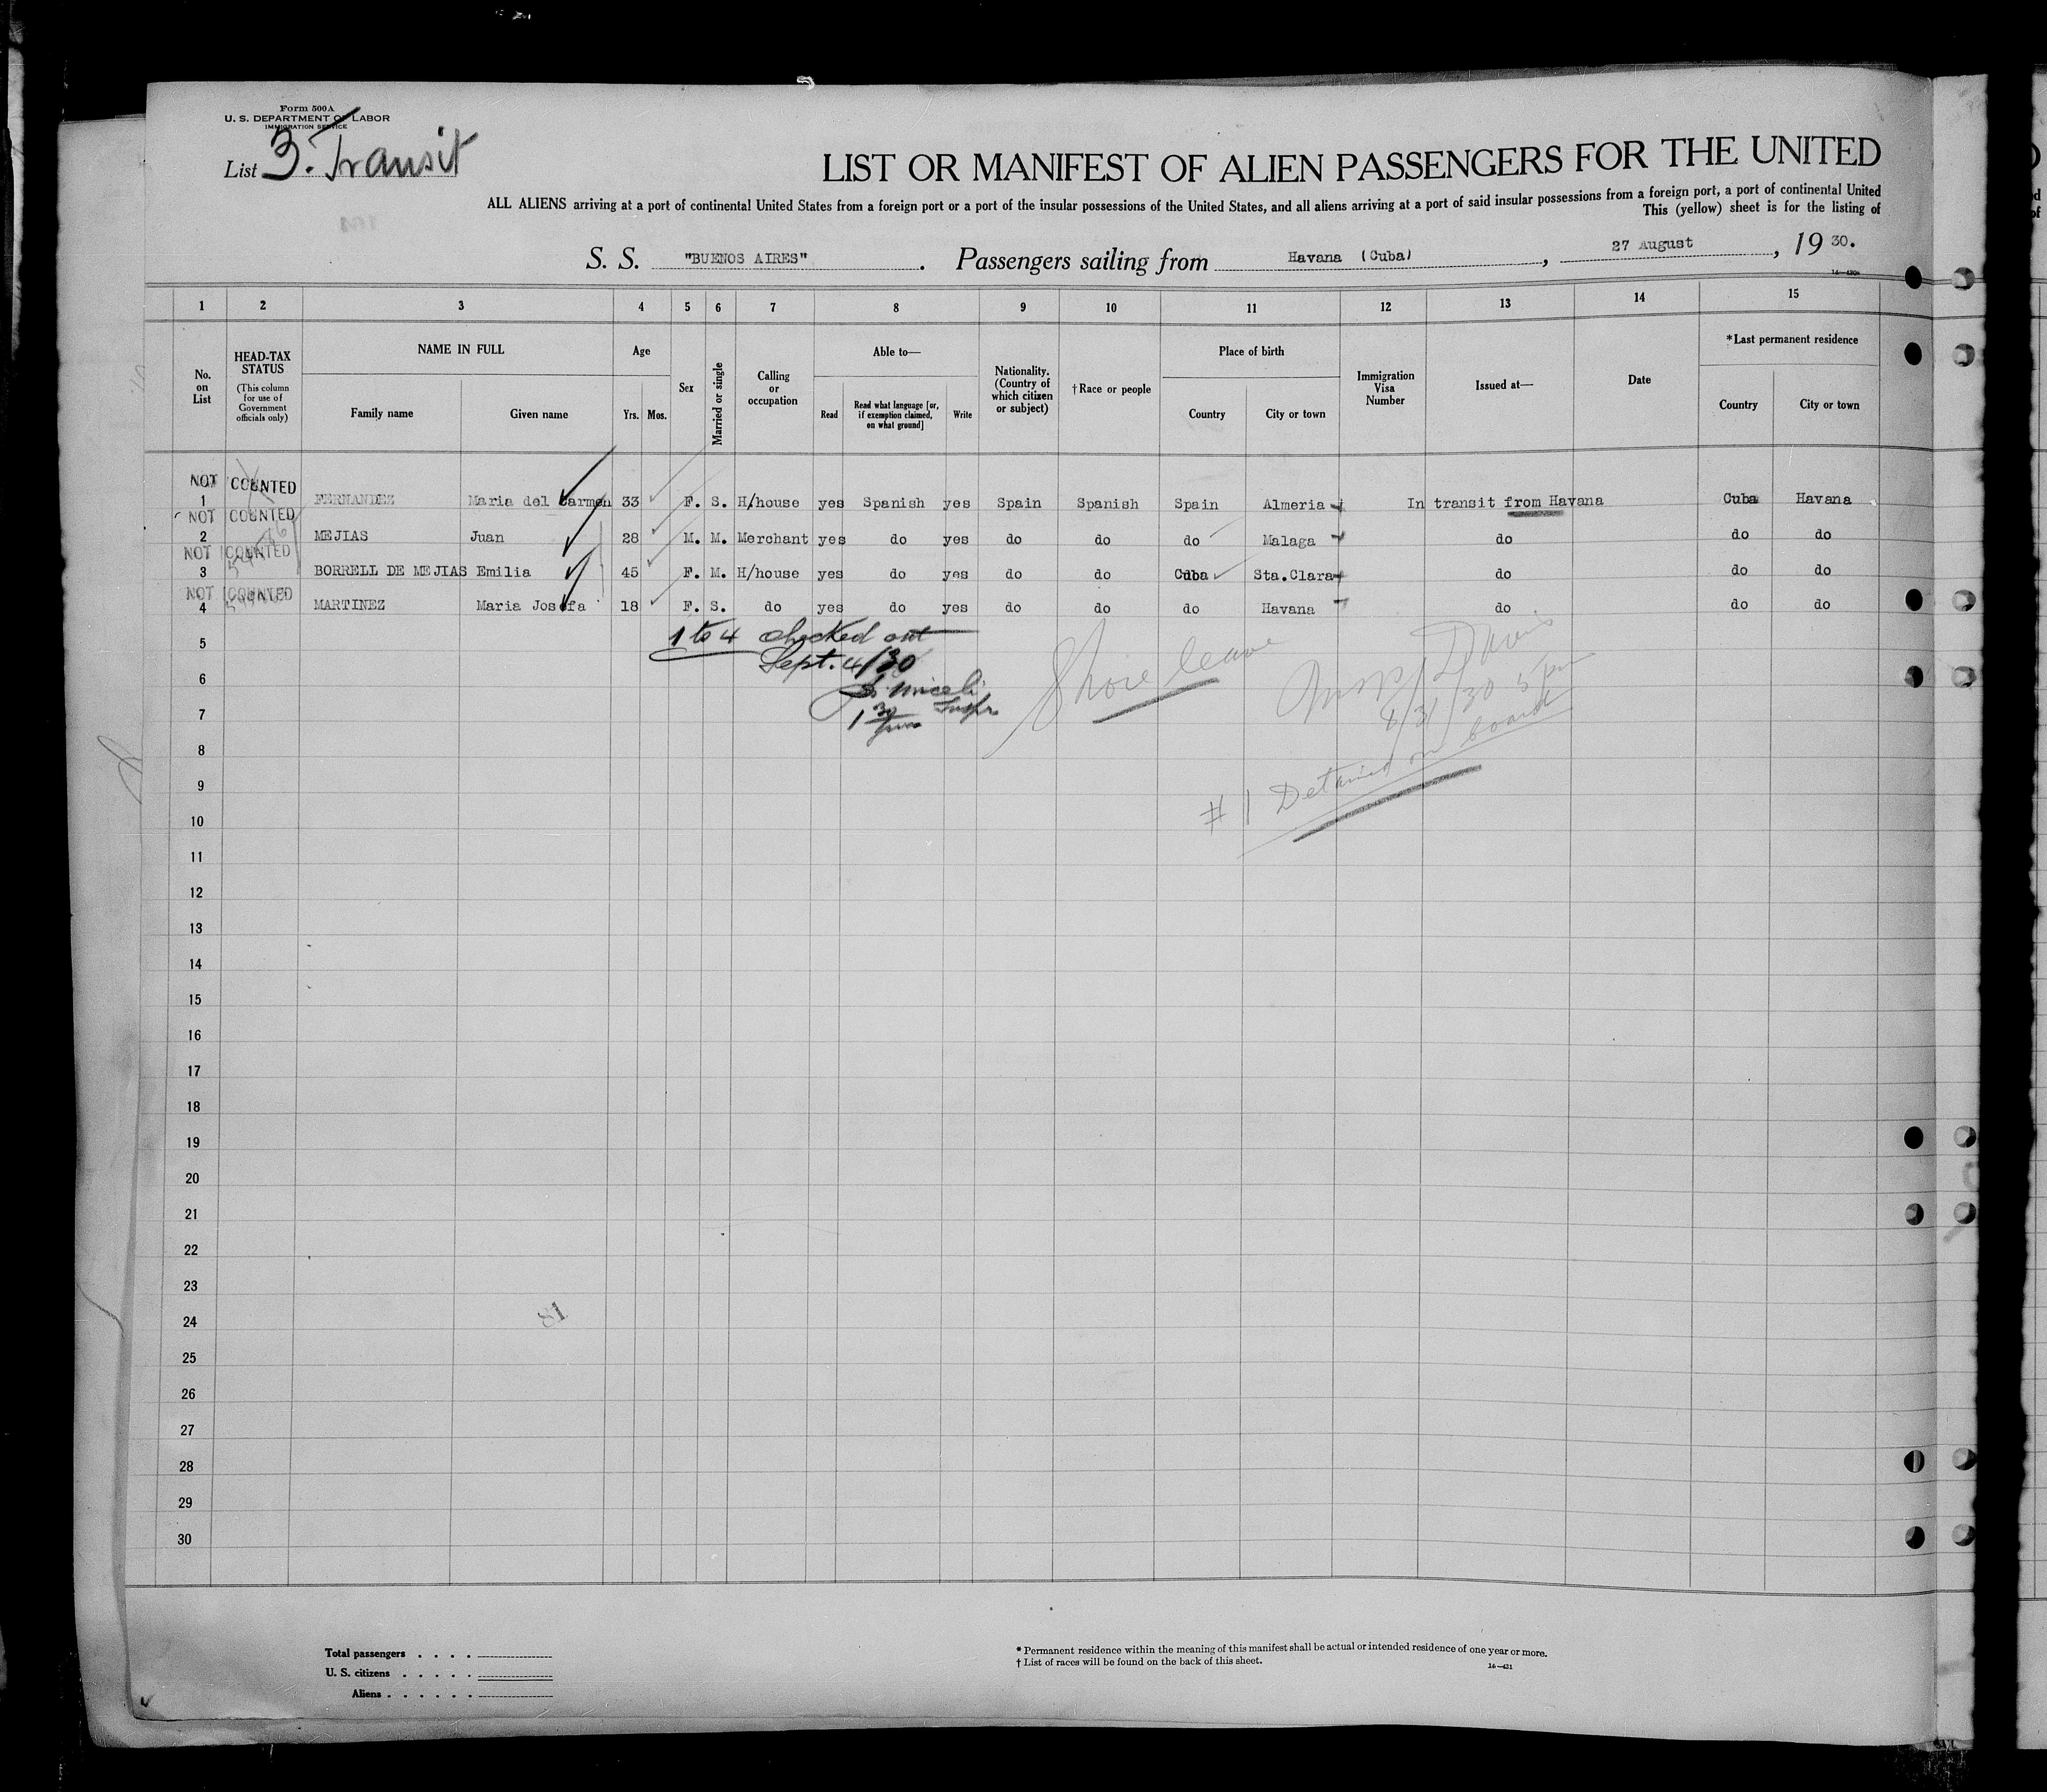 Form 500A
U. S. DEPARTMENT OF LABOR
IMMIGRATION SERVICE
List 3. Transit
LIST OR MANIFEST OF ALIEN PASSENGERS FOR THE UNITED
ALL ALIENS arriving at a port of continental United States from a foreign port or a port of the insular possessions of the United States, and all aliens arriving at a port of said insular possessions from a foreign port, a port of continental United
This (yellow) sheet is for the listing of
S. S. "BUENOS AIRES". Passengers sailing from Havana (Cuba), 27 August, 1930.
1 2 3 4 5 6 7 8 9 10 11 12 13 14 15
No. on List
HEAD-TAX STATUS
(This column for use of Government officials only)
NAME IN FULL
Family name Given name
Age
Yrs. Mos.
Sex
Married or single
Calling or occupation
Able to—
Read
Read what language [or, if exemption claimed, on what ground]
Write
Nationality. (Country of which citizen or subject)
†Race or people
Place of birth
Country City or town
Immigration Visa Number
Issued at—
Date
*Last permanent residence
Country City or town
NOT COUNTED
1 FERNANDEZ Maria del Carmen 33 F. S. H/house yes Spanish yes Spain Spanish Spain Almeria In transit from Havana Cuba Havana
NOT COUNTED
2 MEJIAS Juan 28 M. M. Merchant yes do yes do do do Malaga do do do
NOT COUNTED
3 BORRELL DE MEJIAS Emilia 45 F. M. H/house yes do yes do do Cuba Sta.Clara do do do
NOT COUNTED
4 MARTINEZ Maria Josefa 18 F. S. do yes do yes do do do Havana do do do
1 to 4 checked out
Sept. 4/30
Miceli
Inspr
1 30/pm
Shore leave
Davis
8/31/30 5 pm
#1 Detained on board
5
6
7
8
9
10
11
12
13
14
15
16
17
18
19
20
21
22
23
24
25
26
27
28
29
30
81
Total passengers
U. S. citizens
Aliens
* Permanent residence within the meaning of this manifest shall be actual or intended residence of one year or more.
† List of races will be found on the back of this sheet.
16—431